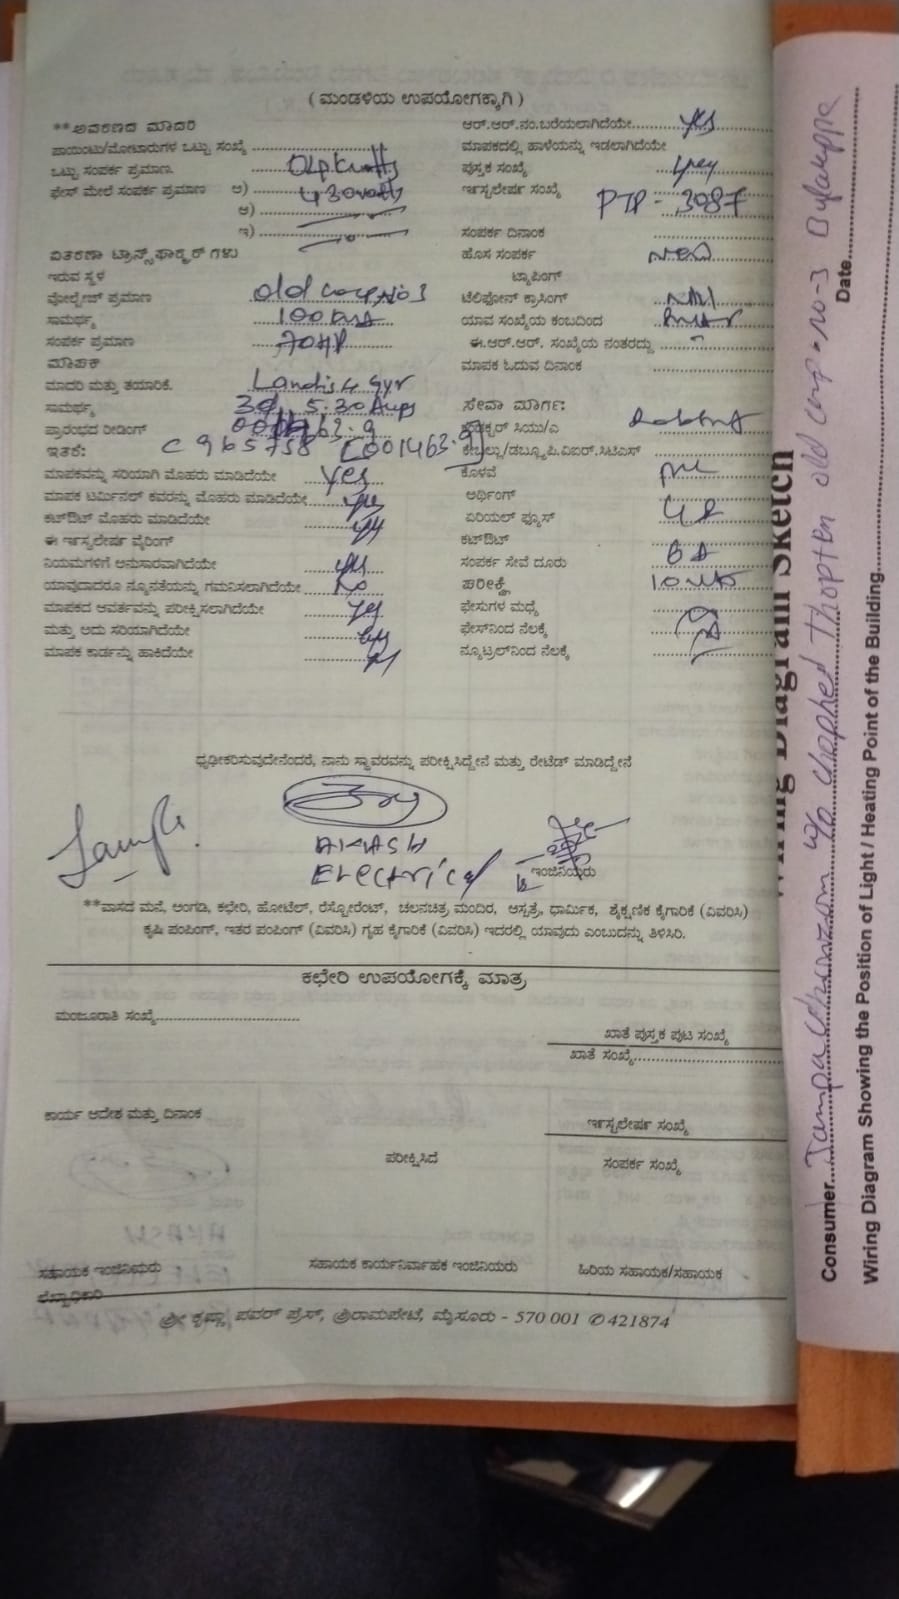 ( ಮಂಡಳಿಯ ಉಪಯೋಗಕ್ಕಾಗಿ )
**ಆವರಣದ ಮಾದರಿ
ಪಾಯಿಂಟು/ಮೋಟಾರುಗಳ ಒಟ್ಟು ಸಂಖ್ಯೆ
ಒಟ್ಟು ಸಂಪರ್ಕ ಪ್ರಮಾಣ
ಫೇಸ್ ಮೇಲೆ ಸಂಪರ್ಕ ಪ್ರಮಾಣ ಅ) 430watts
ಆ)
ಇ)
ವಿತರಣಾ ಟ್ರಾನ್ಸ್‌ಫಾರ್ಮರ್ ಗಳು
ಇರುವ ಸ್ಥಳ
ವೋಲ್ಟೇಜ್ ಪ್ರಮಾಣ old camp No 3
ಸಾಮರ್ಥ್ಯ 100
ಸಂಪರ್ಕ ಪ್ರಮಾಣ 70HP
ಮಾಪಕ
ಮಾದರಿ ಮತ್ತು ತಯಾರಿಕೆ. Landis & Gyr
ಸಾಮರ್ಥ್ಯ 5.30 Amps
ಪ್ರಾರಂಭದ ರೀಡಿಂಗ್
ಇತರೆ: C 965758 [001463.9]
ಮಾಪಕವನ್ನು ಸರಿಯಾಗಿ ಮೊಹರು ಮಾಡಿದೆಯೇ yes
ಮಾಪಕ ಟರ್ಮಿನಲ್ ಕವರನ್ನು ಮೊಹರು ಮಾಡಿದೆಯೇ yes
ಕಟ್‌ಔಟ್ ಮೊಹರು ಮಾಡಿದೆಯೇ yes
ಈ ಇನ್ಸ್ಟಲೇಷನ್ ವೈರಿಂಗ್
ನಿಯಮಗಳಿಗೆ ಅನುಸಾರವಾಗಿದೆಯೇ yes
ಯಾವುದಾದರೂ ನ್ಯೂನತೆಯನ್ನು ಗಮನಿಸಲಾಗಿದೆಯೇ No
ಮಾಪಕದ ಆವರ್ತವನ್ನು ಪರೀಕ್ಷಿಸಲಾಗಿದೆಯೇ yes
ಮತ್ತು ಅದು ಸರಿಯಾಗಿದೆಯೇ yes
ಮಾಪಕ ಕಾರ್ಡನ್ನು ಹಾಕಿದೆಯೇ
ಆರ್.ಆರ್.ನಂ.ಬರೆಯಲಾಗಿದೆಯೇ yes
ಮಾಪಕದಲ್ಲಿ ಹಾಳೆಯನ್ನು ಇಡಲಾಗಿದೆಯೇ
ಪುಸ್ತಕ ಸಂಖ್ಯೆ
ಇನ್ಸ್ಟಲೇಷನ್ ಸಂಖ್ಯೆ PTP - 3087
ಸಂಪರ್ಕ ದಿನಾಂಕ
ಹೊಸ ಸಂಪರ್ಕ New
ಟ್ಯಾಪಿಂಗ್
ಟೆಲಿಫೋನ್ ಕ್ರಾಸಿಂಗ್ Nil
ಯಾವ ಸಂಖ್ಯೆಯ ಕಂಬದಿಂದ
ಈ.ಆರ್.ಆರ್. ಸಂಖ್ಯೆಯ ನಂತರದ್ದು
ಮಾಪಕ ಓದುವ ದಿನಾಂಕ
ಸೇವಾ ಮಾರ್ಗ:
ಕಂಡಕ್ಟರ್ ಸಿಯು/ಎ
ಕೇಬಲ್ಲು/ಡಬ್ಲ್ಯೂಪಿ.ಐಆರ್.ಸಿಟಿಎಸ್
ಕೊಳವೆ
ಅರ್ಥಿಂಗ್
ಏರಿಯಲ್ ಫ್ಯೂಸ್
ಕಟ್‌ಔಟ್
ಸಂಪರ್ಕ ಸೇವೆ ದೂರು
ಪರೀಕ್ಷೆ
ಫೇಸುಗಳ ಮಧ್ಯೆ
ಫೇಸ್‌ನಿಂದ ನೆಲಕ್ಕೆ
ನ್ಯೂಟ್ರಲ್‌ನಿಂದ ನೆಲಕ್ಕೆ
ಧೃಢೀಕರಿಸುವುದೇನೆಂದರೆ, ನಾನು ಸ್ಥಾವರವನ್ನು ಪರೀಕ್ಷಿಸಿದ್ದೇನೆ ಮತ್ತು ರೇಟೆಡ್ ಮಾಡಿದ್ದೇನೆ
AKASH
Electrical
ಇಂಜಿನಿಯರು
**ವಾಸದ ಮನೆ, ಅಂಗಡಿ, ಕಛೇರಿ, ಹೋಟೆಲ್, ರೆಸ್ಟೋರೆಂಟ್, ಚಲನಚಿತ್ರ ಮಂದಿರ, ಆಸ್ಪತ್ರೆ, ಧಾರ್ಮಿಕ, ಶೈಕ್ಷಣಿಕ ಕೈಗಾರಿಕೆ (ವಿವರಿಸಿ)
ಕೃಷಿ ಪಂಪಿಂಗ್, ಇತರ ಪಂಪಿಂಗ್ (ವಿವರಿಸಿ) ಗೃಹ ಕೈಗಾರಿಕೆ (ವಿವರಿಸಿ) ಇದರಲ್ಲಿ ಯಾವುದು ಎಂಬುದನ್ನು ತಿಳಿಸಿರಿ.
ಕಛೇರಿ ಉಪಯೋಗಕ್ಕೆ ಮಾತ್ರ
ಮಂಜೂರಾತಿ ಸಂಖ್ಯೆ
ಖಾತೆ ಪುಸ್ತಕ ಪುಟ ಸಂಖ್ಯೆ
ಖಾತೆ ಸಂಖ್ಯೆ
ಕಾರ್ಯ ಆದೇಶ ಮತ್ತು ದಿನಾಂಕ
ಇನ್ಸ್ಟಲೇಷನ್ ಸಂಖ್ಯೆ
ಪರೀಕ್ಷಿಸಿದೆ
ಸಂಪರ್ಕ ಸಂಖ್ಯೆ
ಸಹಾಯಕ ಇಂಜಿನಿಯರು
ಲೆಖ್ಖಾಧಿಕಾರಿ
ಸಹಾಯಕ ಕಾರ್ಯನಿರ್ವಾಹಕ ಇಂಜಿನಿಯರು
ಹಿರಿಯ ಸಹಾಯಕ/ಸಹಾಯಕ
ಶ್ರೀ ಕೃಷ್ಣಾ ಪವರ್ ಪ್ರೆಸ್, ಶ್ರೀರಾಮಪೇಟೆ, ಮೈಸೂರು - 570 001 ✆ 421874
Wiring Diagram Sketch
Consumer w/o old camp no-3 Bylakuppe
Date
Wiring Diagram Showing the Position of Light / Heating Point of the Building